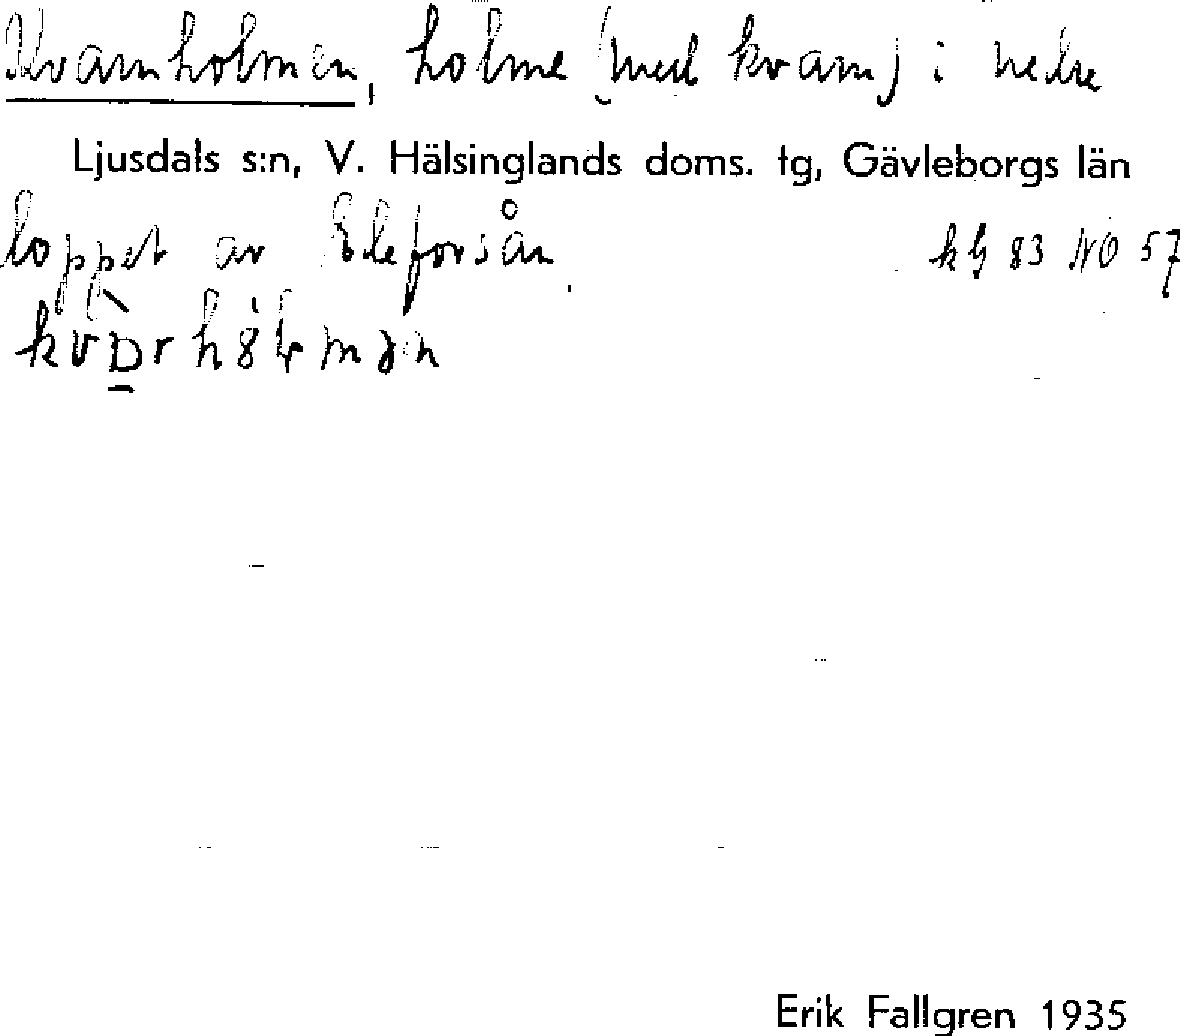 Kvarnholmen, holme (med kvarn) i nedre
Ljusdals s:n, V. Hälsinglands doms. tg, Gävleborgs län
loppet av Eleforsån. kG 83 NO 57
Erik Fallgren 1935